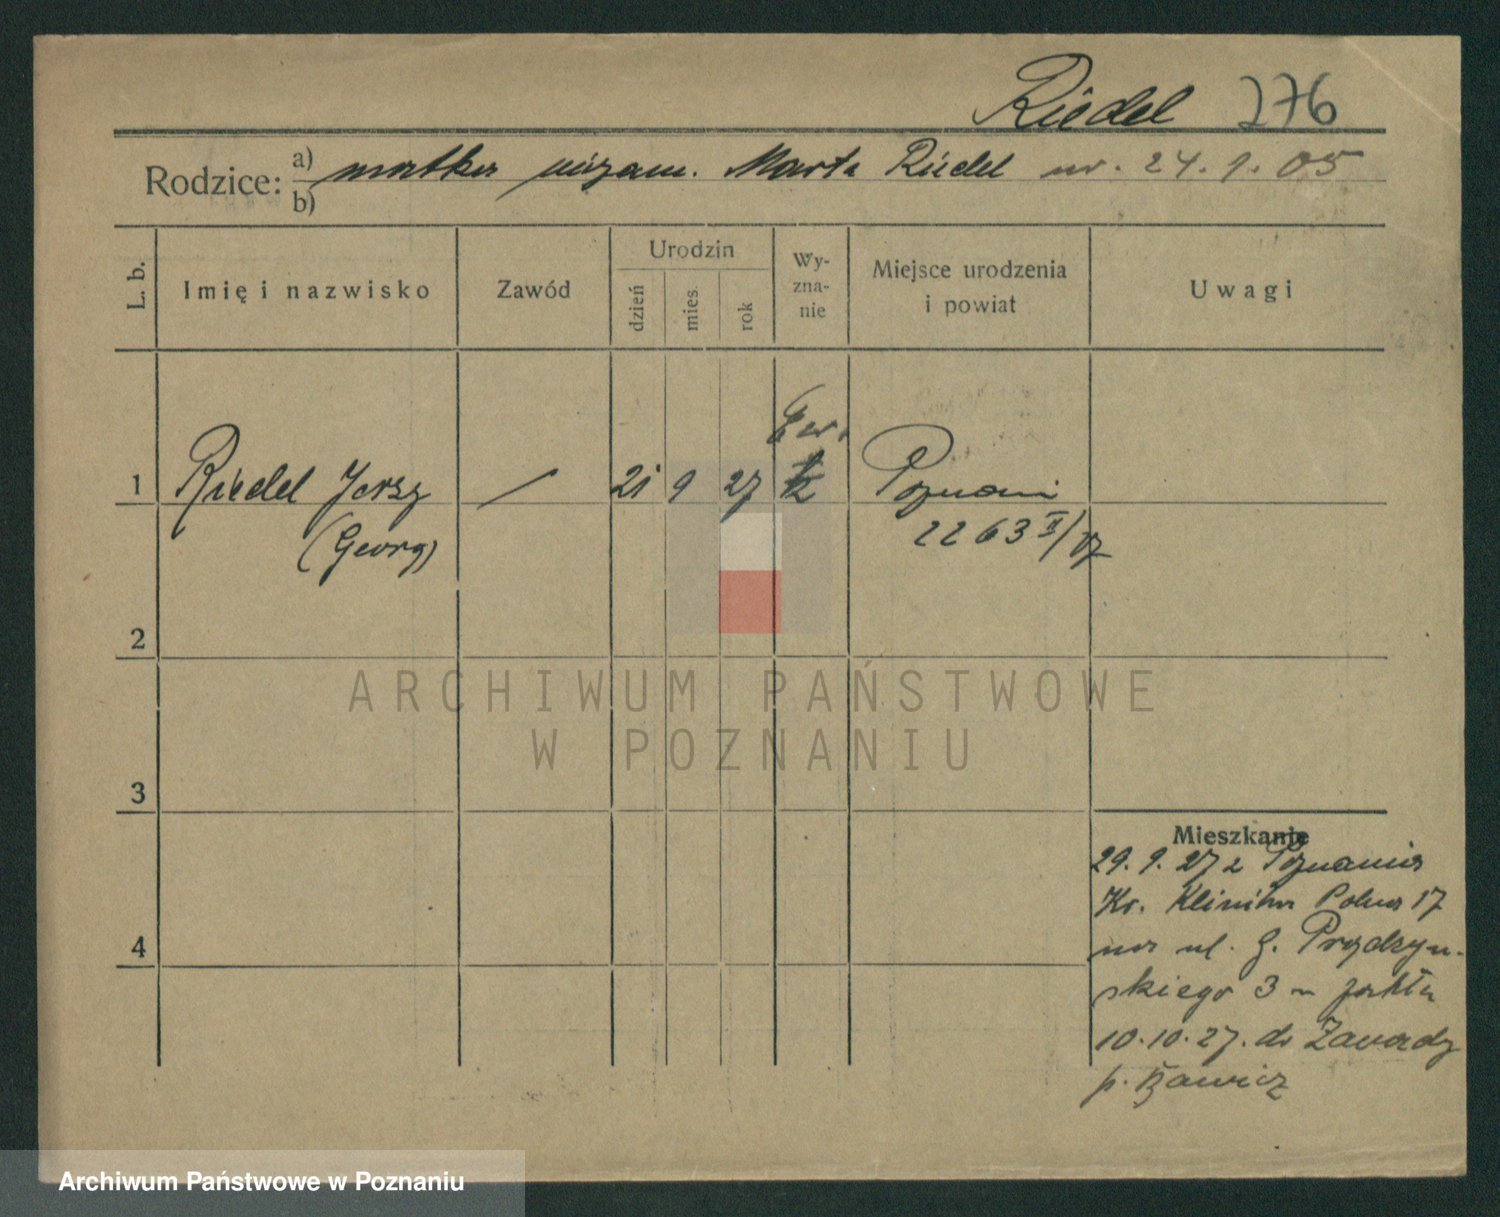 Riedel 276
Rodzice: a) matka niezam. Marta Riedel ur. 24.9.05
b)
L. b.
Imię i nazwisko
Zawód
Urodzin
dzień
mies.
rok
Wy-
zna-
nie
Miejsce urodzenia
i powiat
Uwagi
Ew.
1 Riedel Jerzy / 21 9 27 Poznań
(Georg) 2263 II/27
2
ARCHIWUM PAŃSTWOWE
W POZNANIU
3
Mieszkanie
29.9.27 z Poznania
Kr. Klinika Polna 17
4
na ul. G. Prądzyń-
skiego 3
10.10.27. do Zawady
p.
Archiwum Państwowe w Poznaniu